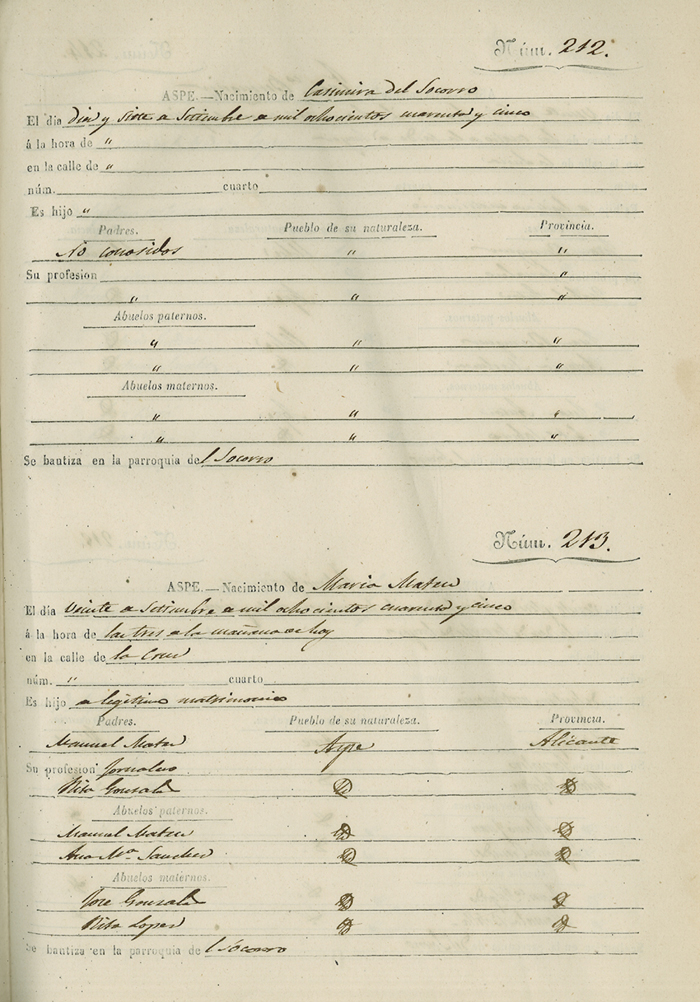 Núm. 212.
ASPE.—Nacimiento de Casimira del Socorro
El día diez y siete de Setiembre de mil ochocientos cuarenta y cinco
á la hora de "
en la calle de "
núm. cuarto
Es hijo "
Padres. Pueblo de su naturaleza. Provincia.
No conosidos " "
Su profesion "
" " "
Abuelos paternos.
" " "
" " "
Abuelos maternos.
" " "
" " "
Se bautiza en la parroquia del Socorro
Núm. 213.
ASPE.—Nacimiento de Maria Mateu
El día veinte de Setiembre de mil ochocientos cuarenta y cinco
á la hora de las tres de la mañana de hoy
en la calle de la Cruz
núm. " cuarto
Es hijo de legitimo matrimonio
Padres. Pueblo de su naturaleza. Provincia.
Manuel Mateu Aspe Alicante
Su profesion Jornalero
Rita Gonzalez
Abuelos paternos.
Manuel Mateu
Ana Mª Sanchez
Abuelos maternos.
Jose Gonzalez
Rita Lopez
Se bautiza en la parroquia del Socorro